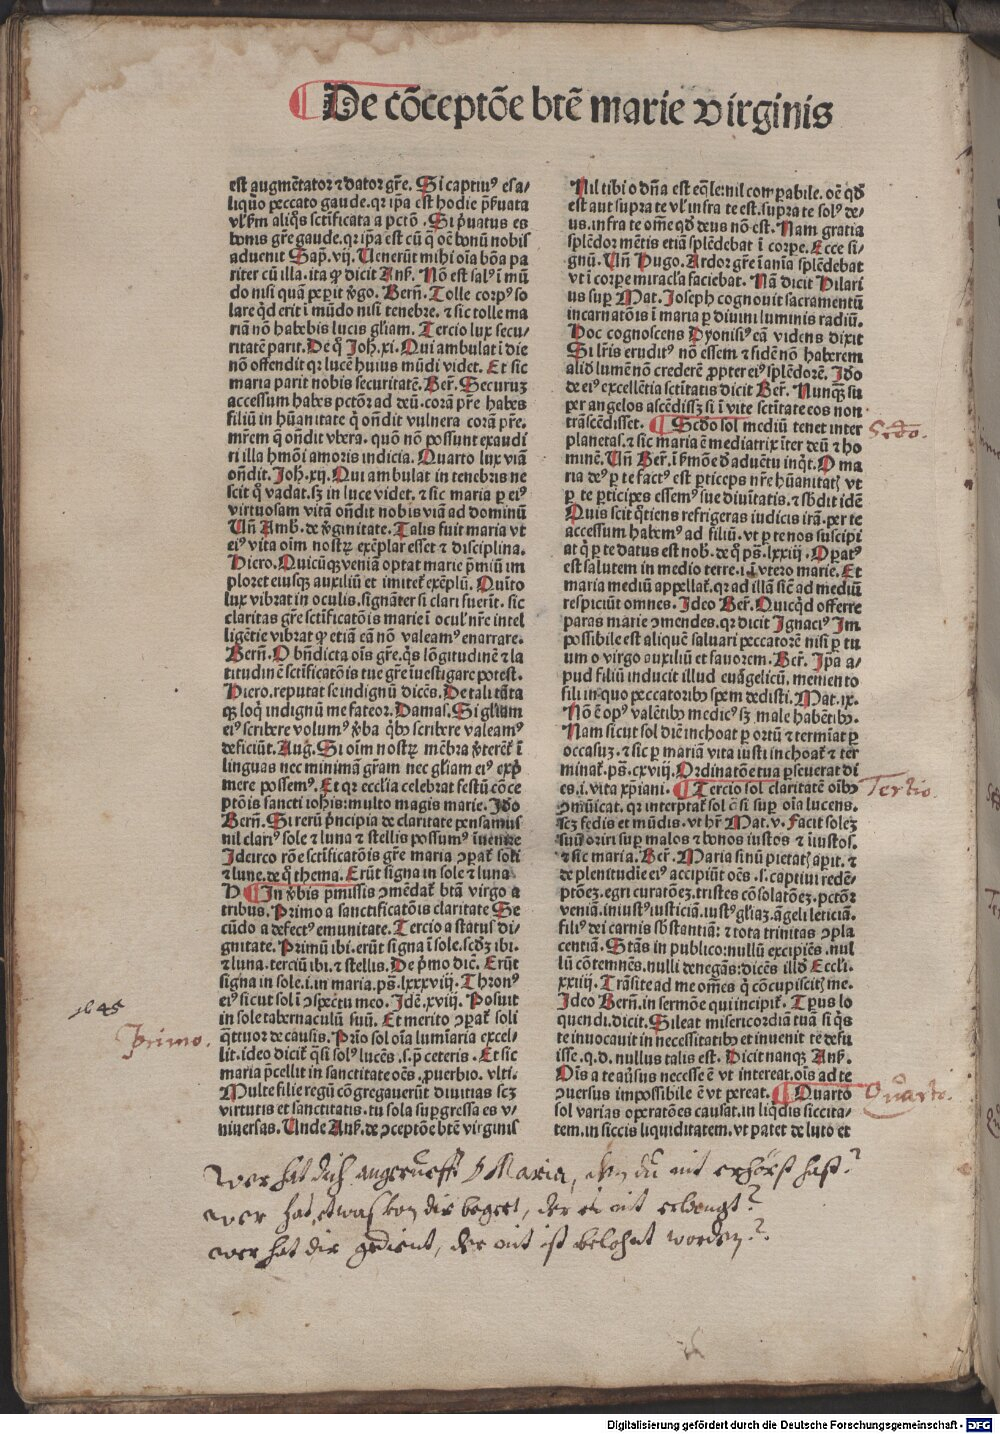 De cōceptōe btē marie virginis
est augmētator ⁊ dator gr̄e. Si captiuꝰ es a/
liquo peccato gaude. qr ip̄a est hodie p̄seruata
vl' sm̄ aliqͦs sctīficata a pctō. Si p̄uatus es
bonis gr̄e gaude. qr ip̄a est cū q̄ oē bonū nobis
aduenit Sap̄. vij. Uenerūt mihi oīa bōa pa
riter cū illa. ita ꝙ dicit Ans̄. Nō est salꝰ ī mū
do nisi quā peperit v̄go. Bern̄. Tolle corpꝰ so
lare qͥd erit ī mūdo nisi tenebre. ⁊ sic tolle ma
riā nō habebis lucis gl'iam. Tercio lux secu/
ritatē parit. De q̄ Joh̄. xi. Qui ambulat ī die
nō offendit qr lucē huius mūdi videt. Et sic
maria parit nobis securitatē. Ber̄. Securuꝫ
accessum habes pctōr ad deū. corā pr̄e habes
filiū in hūanitate q̄ on̄dit vulnera corā pr̄e.
mr̄em q̄ on̄dit vbera. quō nō possunt exaudi
ri illa hmōi amoris indicia. Quarto lux viā
on̄dit. Joh̄. xij. Qui ambulat in tenebris ne
scit q̄ vadat. sꝫ in luce videt. ⁊ sic maria p eiꝰ
virtuosam vitā on̄dit nobis viā ad dominū
Un̄ Amb̄. de v̄ginitate. Talis fuit maria vt
eiꝰ vita oīm nostꝝ exēplar esset ⁊ disciplina.
Hiero. Quicūqꝫ veniā optat marie p̄miū im
ploret eiusqꝫ auxiliū et imitet̄ exēplū. Quīto
lux vibrat in oculis. signāter si clari fuerīt. sic
claritas gr̄e sctīficatōis marie ī ocul' nr̄e intel
ligētie vibrat ꝙ etiā eā nō valeamꝰ enarrare.
Bern̄. O bn̄dicta oīs gr̄e. qͥs lōgitudinē ⁊ la
titudinē sctīficatōis tue gr̄e īuestigare potest.
Hiero. reputat se indignū dicēs. De tali tāta
qꝫ loqͥ indignū me fateor. Damas. Si gl'iam
eiꝰ scribere volumꝰ v̄ba qͥbꝰ scribere valeamꝰ
deficiūt. Auḡ. Si oīm nostꝝ mēbra v̄terēt̄ ī
linguas nec minimā gr̄am nec gl'iam eiꝰ exp̄
mere possemꝰ. Et qr ecclīa celebrat festū cōce
ptōis sancti ioh̄is: multo magis marie. Jdo
Bern̄. Si rerū p̄ncipia de claritate pensamus
nil clariꝰ sole ⁊ luna ⁊ stellis possumꝰ īuenire
Jdcirco rōe sctīficatōis gr̄e maria ꝯparat̄ soli
⁊ lune. de q̄ thema. Erūt signa in sole ⁊ luna
¶ In v̄bis p̄missis ꝯmēdat̄ btā virgo a
tribus. Primo a sanctificatōis claritate Se
cūdo a defectꝰ emunitate. Tercio a status di/
gnitate. Primū ibi. erūt signa ī sole. scd̄ꝫ ibi.
⁊ luna. terciū ibi. ⁊ stellis. De p̄mo dic̄. Erūt
signa in sole. i. in maria. ps̄. lxxxviij. Thronꝰ
eiꝰ sicut sol ī ꝯspectu meo. Jdē. xviij. Posuit
in sole tabernaculū suū. Et merito ꝯparat̄ soli
qͣttuor de causis. Prīo sol oīa lumīaria excel/
lit. ideo dicit̄ qͣsi solꝰ lucēs. s. p̄ ceteris. Et sic
maria p̄cellit in sanctitate oēs. prouerbio. vlti.
Multe filie regū cōgregauerūt diuitias scꝫ
virtutis et sanctitatis. tu sola sup̄gressa es v/
niuersas. Unde Ans̄. de ꝯceptōe btē virginis
Nil tibi o dn̄a est eq̄le: nil comparabile. oē qd̄
est aut supra te vl' infra te est. supra te solꝰ de/
us. infra te om̄e qd̄ deus nō est. Nam gratia
splēdor mētis etiā splēdebat ī corpe. Ecce si/
gnū. Un̄ Hugo. Ardor gr̄e ī anīa splēdebat
vt ī corpe miracl'a faciebat. Nā dicit Hilari
us sup̄ Mat. Joseph cognouit sacramentū
incarnatōis ī maria p diuini luminis radiū.
Hoc cognoscens Dyonisiꝰ eā videns dixit
Si lr̄is eruditꝰ nō essem ⁊ fidē nō haberem
aliō lumē nō crederē ꝓpter eiꝰ splēdorē. Jdo
de eiꝰ excellētia sctītatis dicit Ber̄. Nunqͣꝫ su
per angelos ascēdissꝫ si ī vite sctītate eos non
trāscēdisset. ¶ Scd̄o sol mediū tenet inter
planetas. ⁊ sic maria ē mediatrix īter deū ⁊ ho
minē. Un̄ Ber̄. ī s̄mōe d̄ aduētu inqͥt. O ma
ria deꝰ p te factꝰ est pticeps nr̄e hūanitatꝭ vt
p te pticipes essemꝰ sue diuītatis. ⁊ sb̄dit idē
Quis scit qͦtiens refrigeras iudicis irā. per te
accessum habemꝰ ad filiū. vt p te nos suscipi
at qͥ p te datus est nob̄. de q̄ ps̄. lxxiij. Opatꝰ
est salutem in medio terre. i. ī vtero marie. Et
maria mediū appellat̄. qr ad illā sic̄ ad mediū
respiciūt omnes. Jdeo Ber̄. Quicqͥd offerre
paras marie ꝯmendes. qr dicit Ignaciꝰ Im
possibile est aliquē saluari peccatorē nisi p tu
um o virgo auxiliū et fauorem. Ber̄. Ip̄a a/
pud filiū inducit illud euāgelicū. memento
fili in quo peccatoribꝰ spem dedisti. Mat. ix.
Nō ē opꝰ valētibꝰ medicꝰ sꝫ male habētibꝰ.
Nam sicut sol diē inchoat p ortū ⁊ termīat p
occasuꝫ. ⁊ sic p mariā vita iusti inchoat̄ ⁊ ter
minat̄. ps̄. cxviij. Ordinatōe tua pseuerat di
es. i. vita xp̄iani. ¶ Tercio sol claritatē oībꝰ
ꝯmūicat. qr interptat̄ sol q̄si sup̄ oīa lucens.
scꝫ fedis et mūdis. vt hr̄ Mat. v. Facit soleꝫ
suū oriri sup̄ malos ⁊ bonos iustos ⁊ īiustos.
⁊ sic maria. Ber̄. Maria sinū pietatꝭ apit. ⁊
de plenitudie eiꝰ accipiūt oēs. s. captiui redē/
ptōeꝫ. egri curatōeꝫ. tristes cōsolatōeꝫ. pctōr
veniā. iniustꝰ iusticiā. iustꝰ gl'iaꝫ. āgeli leticiā.
filiꝰ dei carnis sb̄stantiā: ⁊ tota trinitas ꝯpla
centiā. Stās in publico: nullū excipiēs. nul
lū cōtemnēs. nulli denegās: dicēs illd̄ Eccl'i.
xxiiij. Trāsite ad me om̄es q̄ cōcupiscitꝭ me.
Jdeo Bern̄. in sermōe qui incipit̄. Tp̄us lo
quendi. dicit. Sileat misericordiā tuā si qͥs
te inuocauit in necessitatibꝰ et inuenit te defu
isse. q. d. nullus talis est. Dicit nanqꝫ Ans̄.
Oīs a te auersus necesse ē vt intereat. oīs ad te
ꝯuersus impossibile ē vt pereat. ¶ Quarto
sol varias operatōes causat. in liqͥdis siccita/
tem. in siccis liquiditatem. vt patet de luto et
Scdo.
Tertio.
1645
Primo.
Quarto.
Wer hat dich angerueff O Maria, den du nit erhörst hast?
wer hat etwas von dir begert, der es nit erlangt?
wer hat dir gedient, der nit ist belohnt worden?
Digitalisierung gefördert durch die Deutsche Forschungsgemeinschaft - DFG